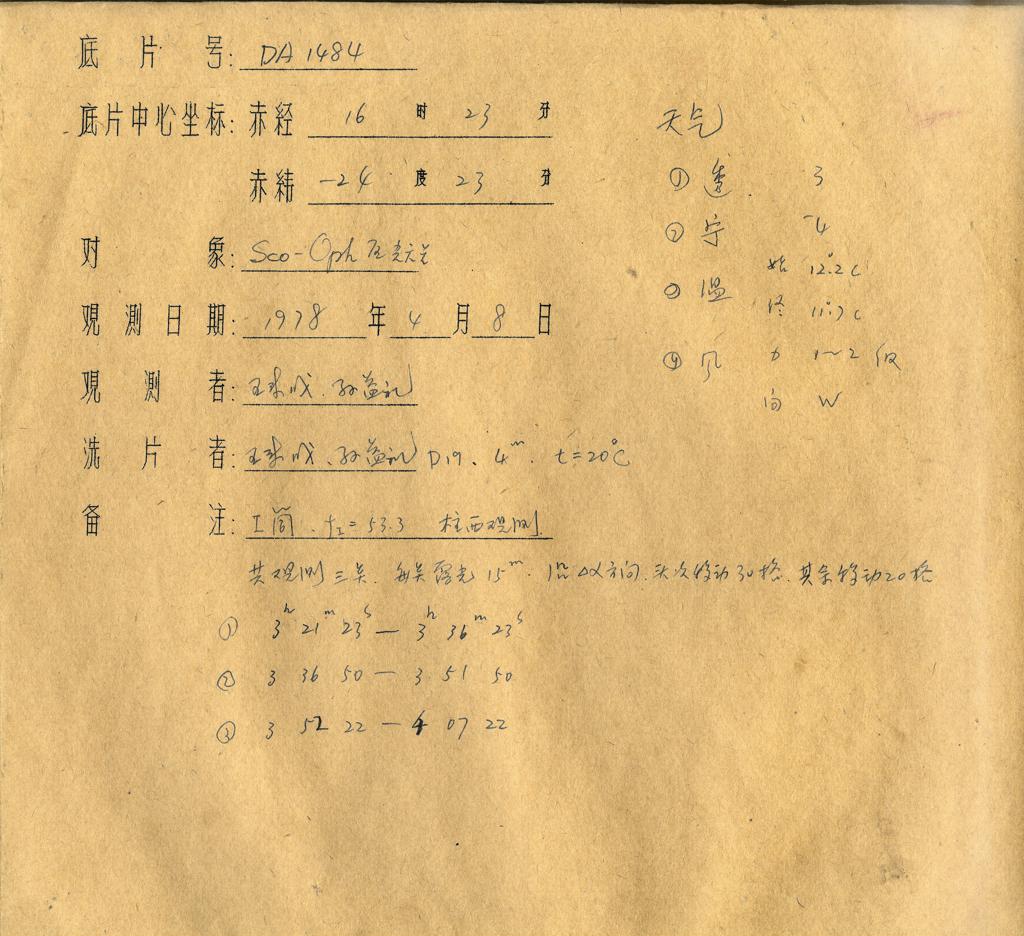 底片号: DA 1484
底片中心坐标: 赤经 16 时 23 分
赤纬 -24 度 23 分
对象: Sco-Oph
观测日期: 1978 年 4 月 8 日
观测者: 王 成、孙益礼
洗片者: 王 成、孙益礼 D19、4ᵐ. t=20°C
备注: I筒. f_I=53.3 柱西观测
共观测三 . 每 露光 15ᵐ. 沿Δα方向. 次移动30格. 其余移动20格
① 3ʰ 21ᵐ 23ˢ — 3ʰ 36ᵐ 23ˢ
② 3 36 50 — 3 51 50
③ 3 52 22 — 4 07 22
天气
① 透. 3
② 宁 4
③ 温 始 12.°2 C
终 11.°7 C
④ 风 力 1~2 级
向 W